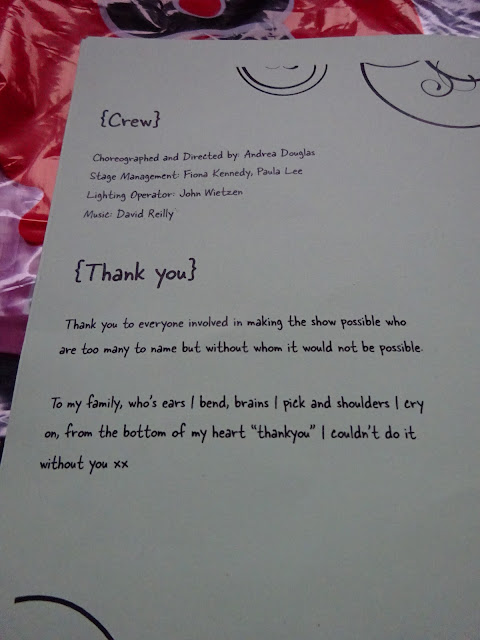 {Crew}
Choreographed and Directed by: Andrea Douglas
Stage Management: Fiona Kennedy, Paula Lee
Lighting Operator: John Wietzen
Music: David Reilly
{Thank you}
Thank you to everyone involved in making the show possible who
are too many to name but without whom it would not be possible.
To my family, who's ears I bend, brains I pick and shoulders I cry
on, from the bottom of my heart "thankyou" I couldn't do it
without you xx